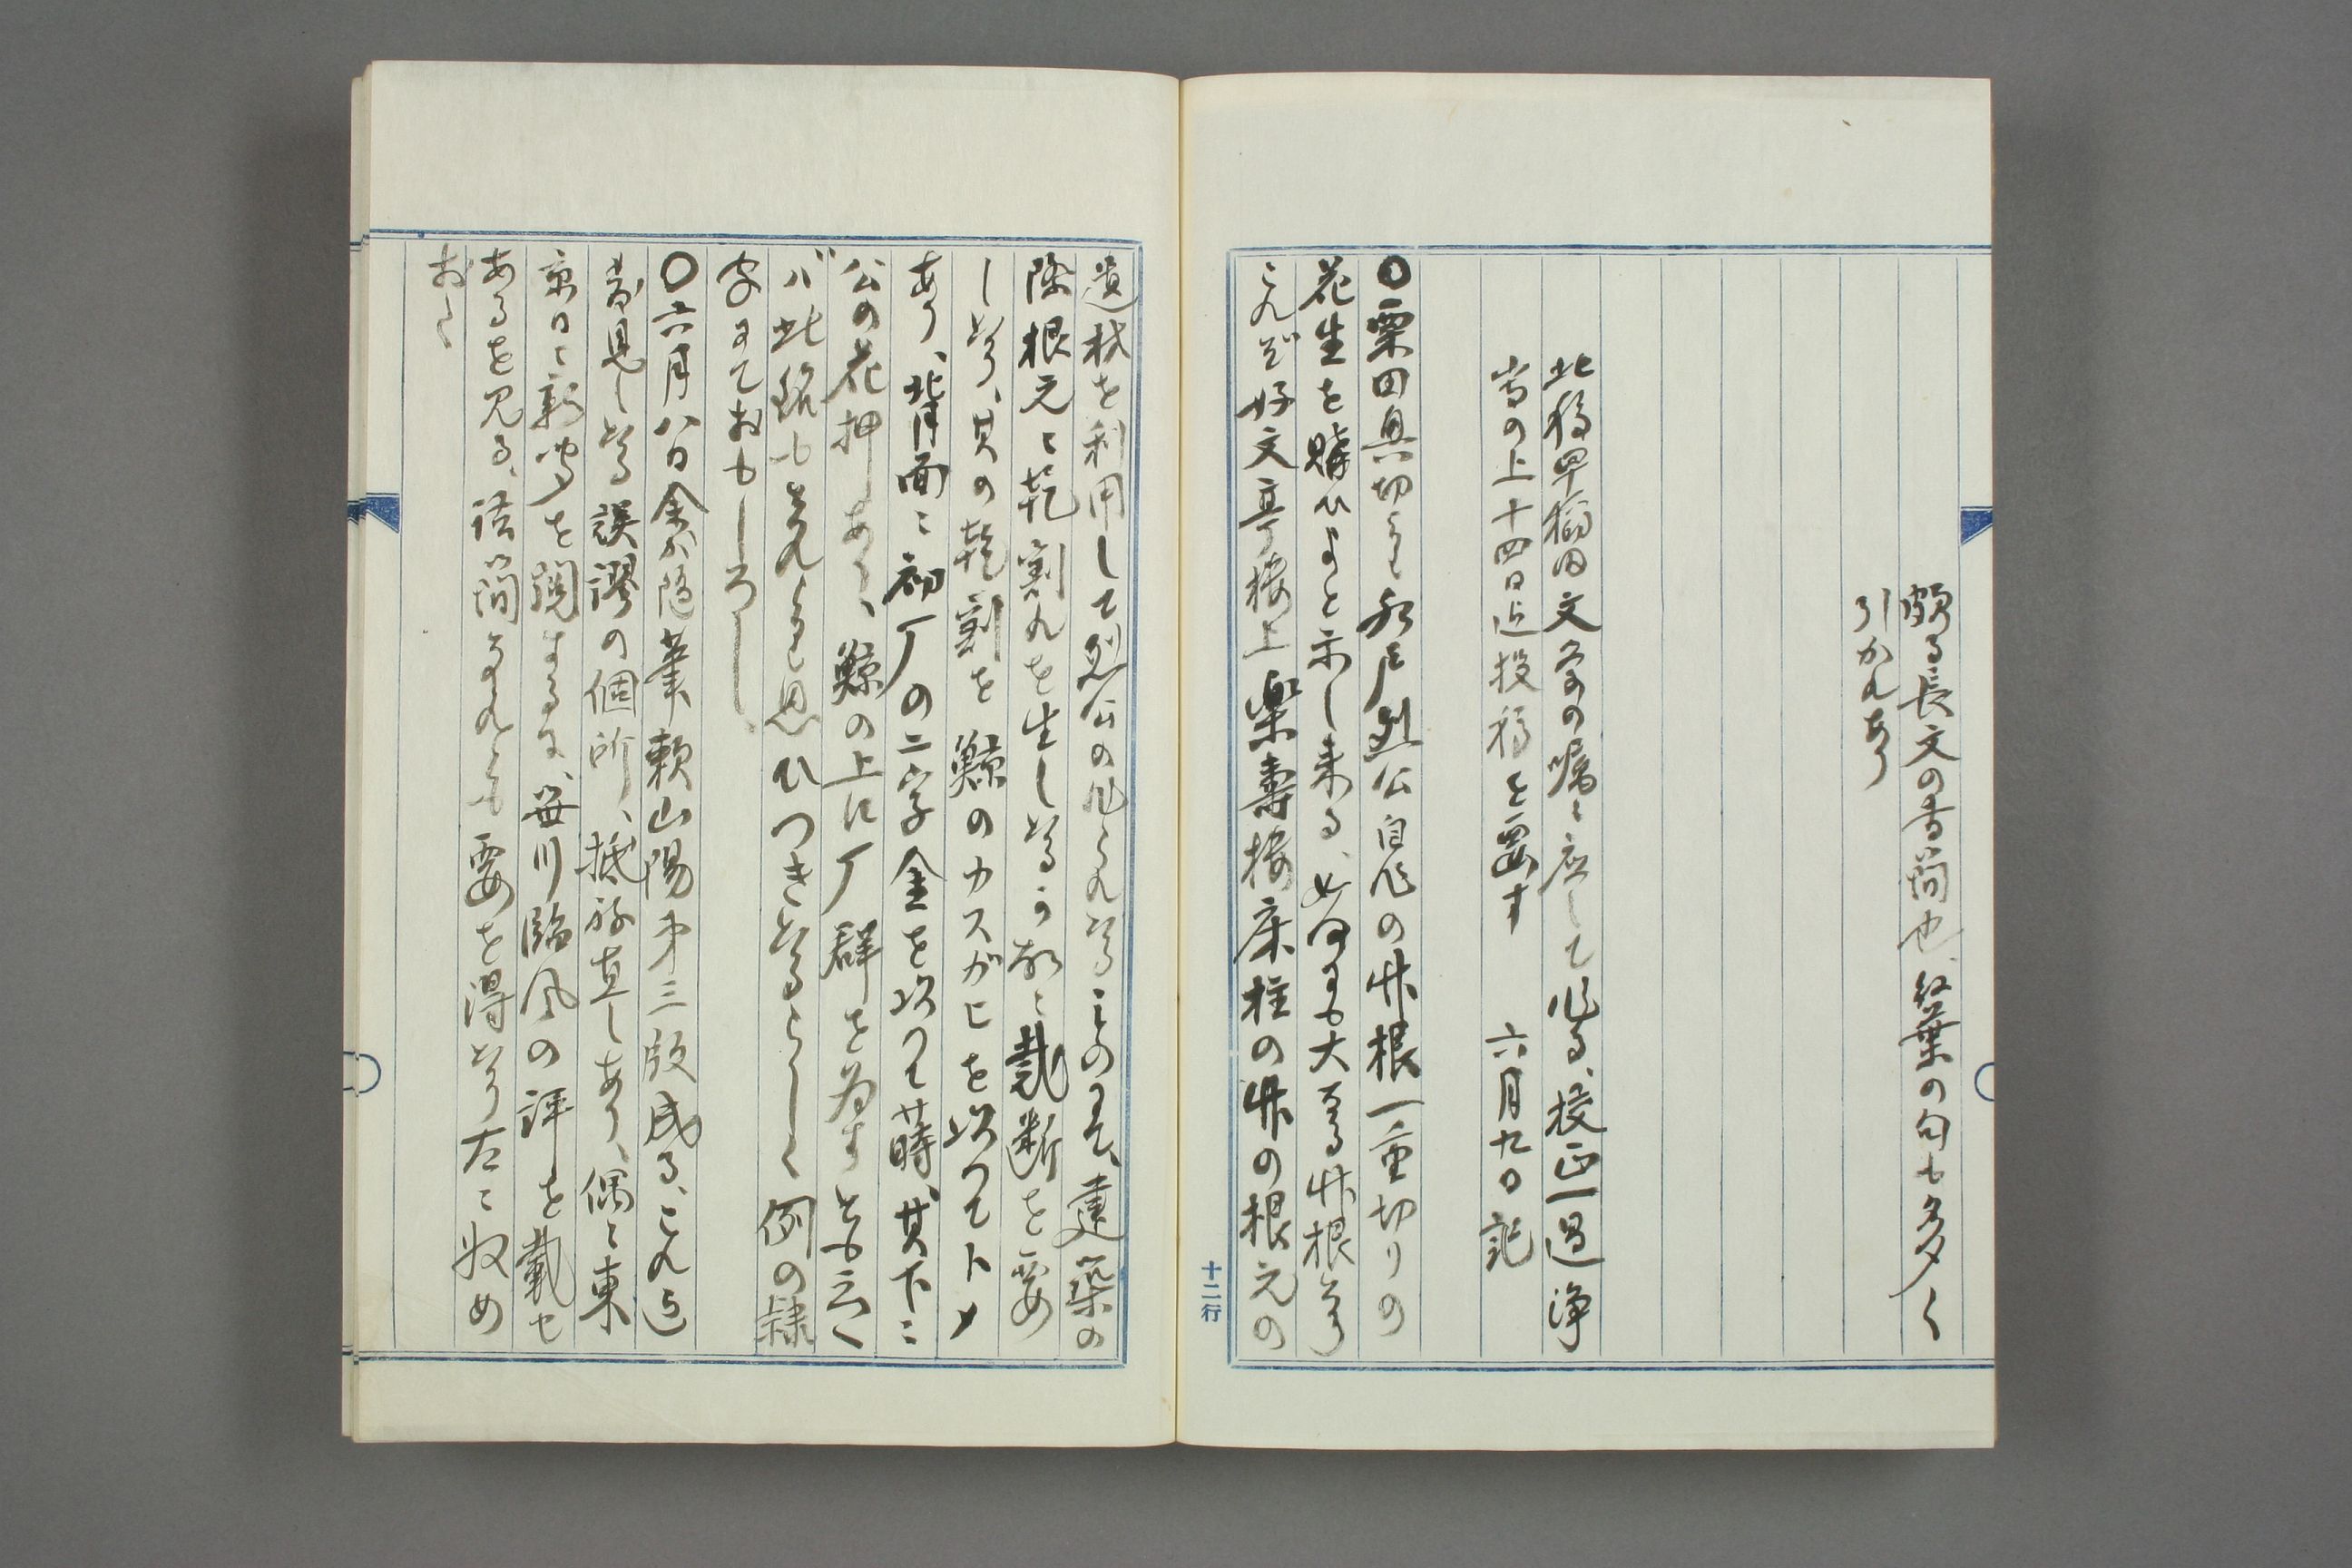 頗る長文の書簡也、紅葉の句も多く
引かれあり
此稿早稲田文学の嘱に応して作る、校正一過浄
書の上十四日迄投稿を要す　六月九日記
〇粟田真切より水戸烈公自作の竹根一重切りの
花生を購ひよと示し来る、如何にも大なる竹根なり
これぞ好文亭楼上楽寿楼床柱の竹の根元の
遺材を利用して烈公の作られたるものにて、建築の
際根元に乾割れを生したるゆゑに裁断を要
したり、其の乾割を鯨のカスガヒを以つてトメ
あり、背面に初丁の二字金を以つて蒔、其下に
公の花押あり、鯨の上に丁群を為すとも云へ
バ此銘もそれらより思ひつきたるらしく例の隷
字にておもしろし
〇六月八日余が随筆頼山陽第三版成る、これ迄
発見したる誤謬の個所、抵改直しあり、偶に東
京日々新聞を閲するに、笹川臨風の評を載せ
あるを見る、話簡なれども要を得たり左に収め
おく
十二行